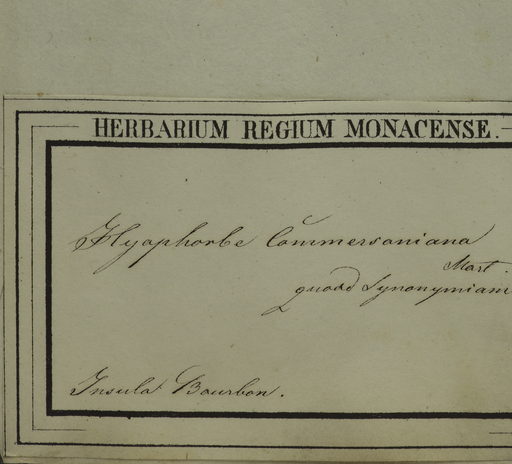 HERBARIUM REGIUM MONACENSE.
Hyophorbe Commersoniana
Mart.
quoad Synonymiam
Insula Bourbon.